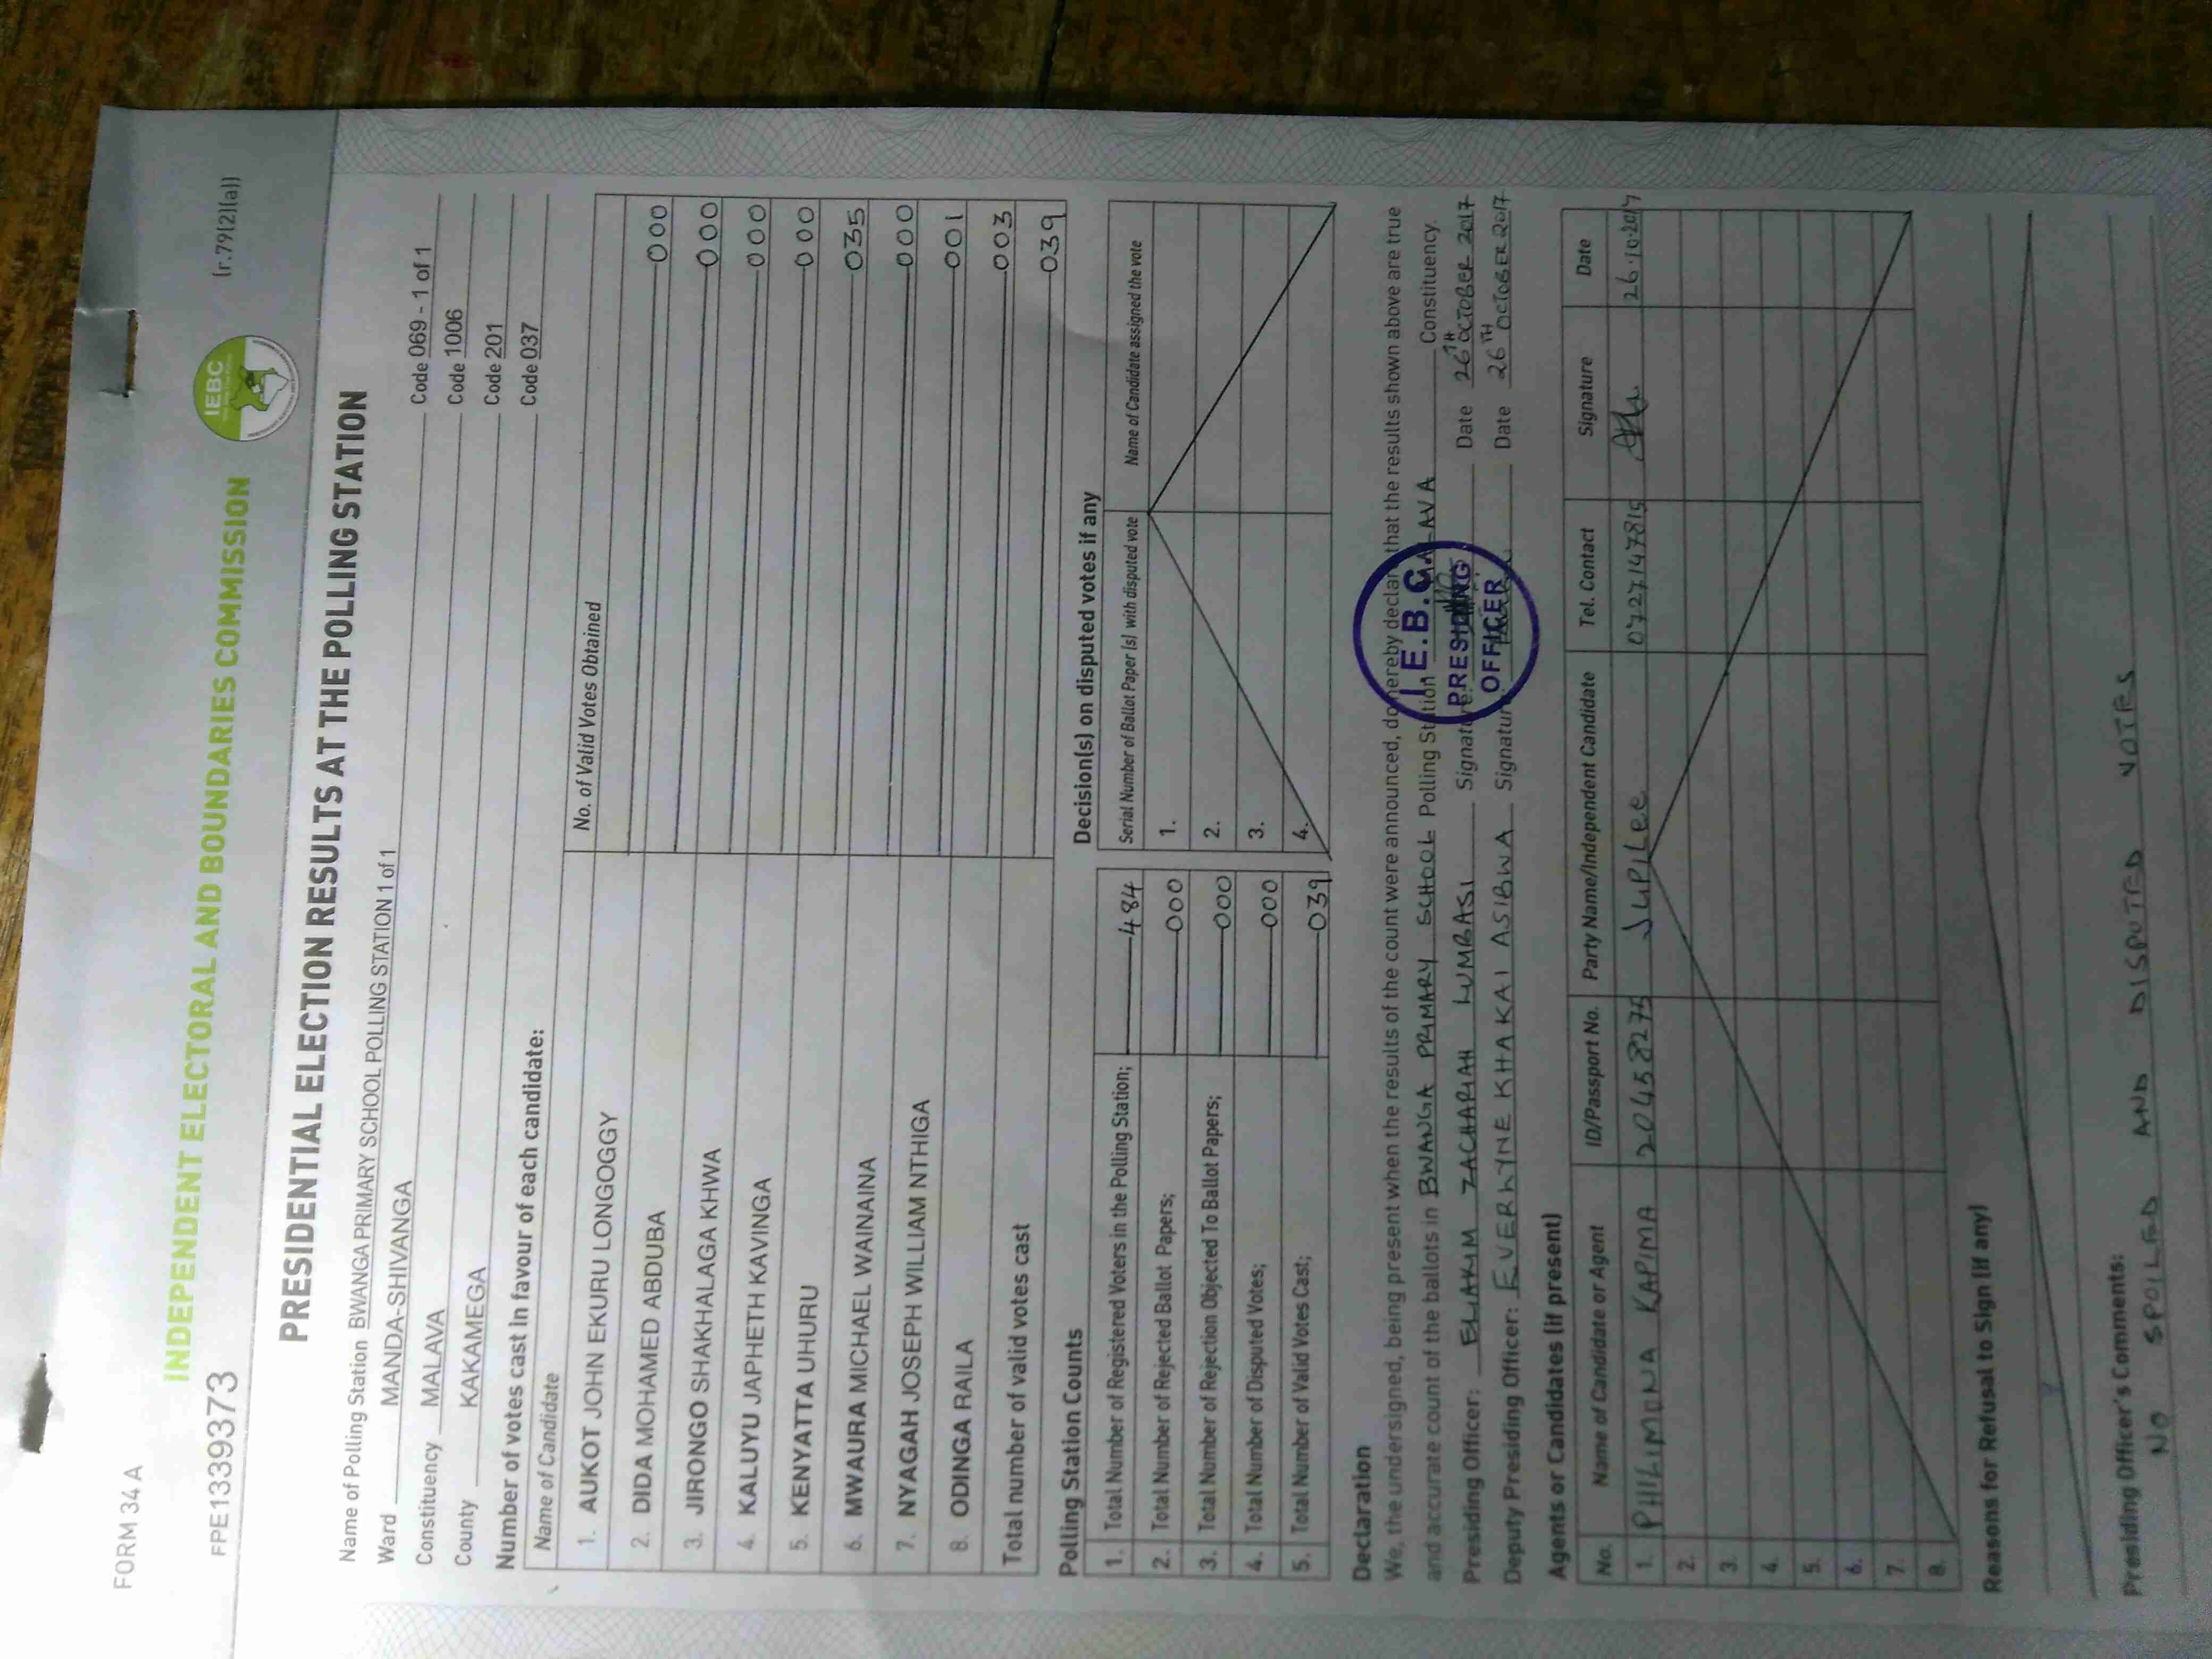 FORM 34 A
FPE1339373
INDEPENDENT ELECTORAL AND BOUNDARIES COMMISSION
IEBC
(r.79(2)(a))
PRESIDENTIAL ELECTION RESULTS AT THE POLLING STATION
Name of Polling Station BWANGA PRIMARY SCHOOL POLLING STATION 1 of 1 Code 069 - 1 of 1
Ward MANDA-SHIVANGA Code 1006
Constituency MALAVA Code 201
County KAKAMEGA Code 037
Number of votes cast in favour of each candidate:
Name of Candidate No. of Valid Votes Obtained
1. AUKOT JOHN EKURU LONGOGGY 000
2. DIDA MOHAMED ABDUBA 000
3. JIRONGO SHAKHALAGA KHWA 000
4. KALUYU JAPHETH KAVINGA 000
5. KENYATTA UHURU 035
6. MWAURA MICHAEL WAINAINA 000
7. NYAGAH JOSEPH WILLIAM NTHIGA 001
8. ODINGA RAILA 003
Total number of valid votes cast 039
Polling Station Counts
1. Total Number of Registered Voters in the Polling Station; 484
2. Total Number of Rejected Ballot Papers; 000
3. Total Number of Rejection Objected To Ballot Papers; 000
4. Total Number of Disputed Votes; 000
5. Total Number of Valid Votes Cast; 039
Decision(s) on disputed votes if any
Serial Number of Ballot Paper (s) with disputed vote Name of Candidate assigned the vote
1.
2.
3.
4.
Declaration
We, the undersigned, being present when the results of the count were announced, do hereby declare that the results shown above are true
and accurate count of the ballots in BWANGA PRIMARY SCHOOL Polling Station MALAVA Constituency.
Presiding Officer: ELIAKIM ZACHARIAH LUMBASI Signature: Date 26TH OCTOBER 2017
Deputy Presiding Officer: EVERLYNE KHAKAI ASIBWA Signature: Date 26TH OCTOBER 2017
I.E.B.C
PRESIDING
OFFICER
Agents or Candidates (if present)
No. Name of Candidate or Agent ID/Passport No. Party Name/Independent Candidate Tel. Contact Signature Date
1. PHILIMONA KAPIMA 20458275 JUPILEE 0727147815 26.10.2017
2.
3.
4.
5.
6.
7.
8.
Reasons for Refusal to Sign (if any)
Presiding Officer's Comments:
NO SPOILED AND DISPUTED VOTES